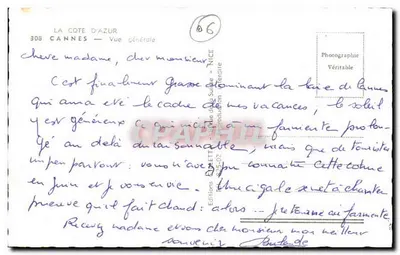 LA COTE D'AZUR
308 CANNES - Vue générale
06
Photographie
Véritable
Chere madame, cher monsieur
C'est finalement Grasse dominant la baie de Cannes
qui aura été le cadre de mes vacances, le soleil
y est généreux farniente prolon-
gé au delà du raisonnable, mais que de touristes
un peu partout. vous n'avez pas connaitre cette cohue
en juin et je vous envie. Une cigale se met à chanter
preuve qu'il fait chaud : alors ... je retourne au farniente
Recevez madame et vous cher monsieur mon meilleur
souvenir